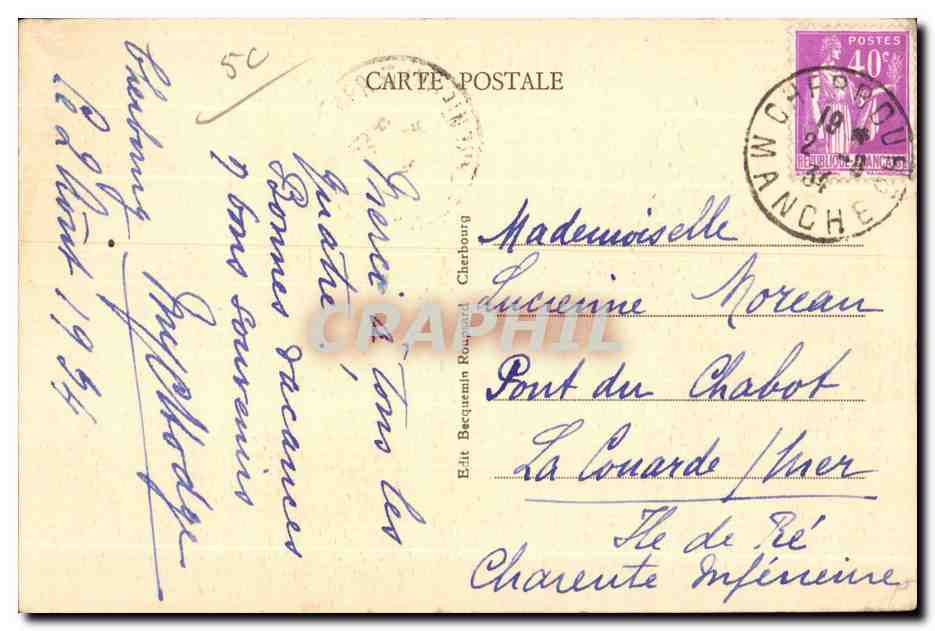 5c
CARTE POSTALE
POSTES
40c
RÉPUBLIQUE FRANÇAISE
CHERBOURG
MANCHE
18
2 -8
34
Cherbourg
le 2 Août 1934
Merci à tous les
quatre,
Bonnes vacances
& bons souvenirs
Edit Becquemin Roupsard Cherbourg
Mademoiselle
Lucienne Moreau
Pont du Chabot
La Couarde / mer
Ile de Ré
Charente Inférieure
CPAPHIL